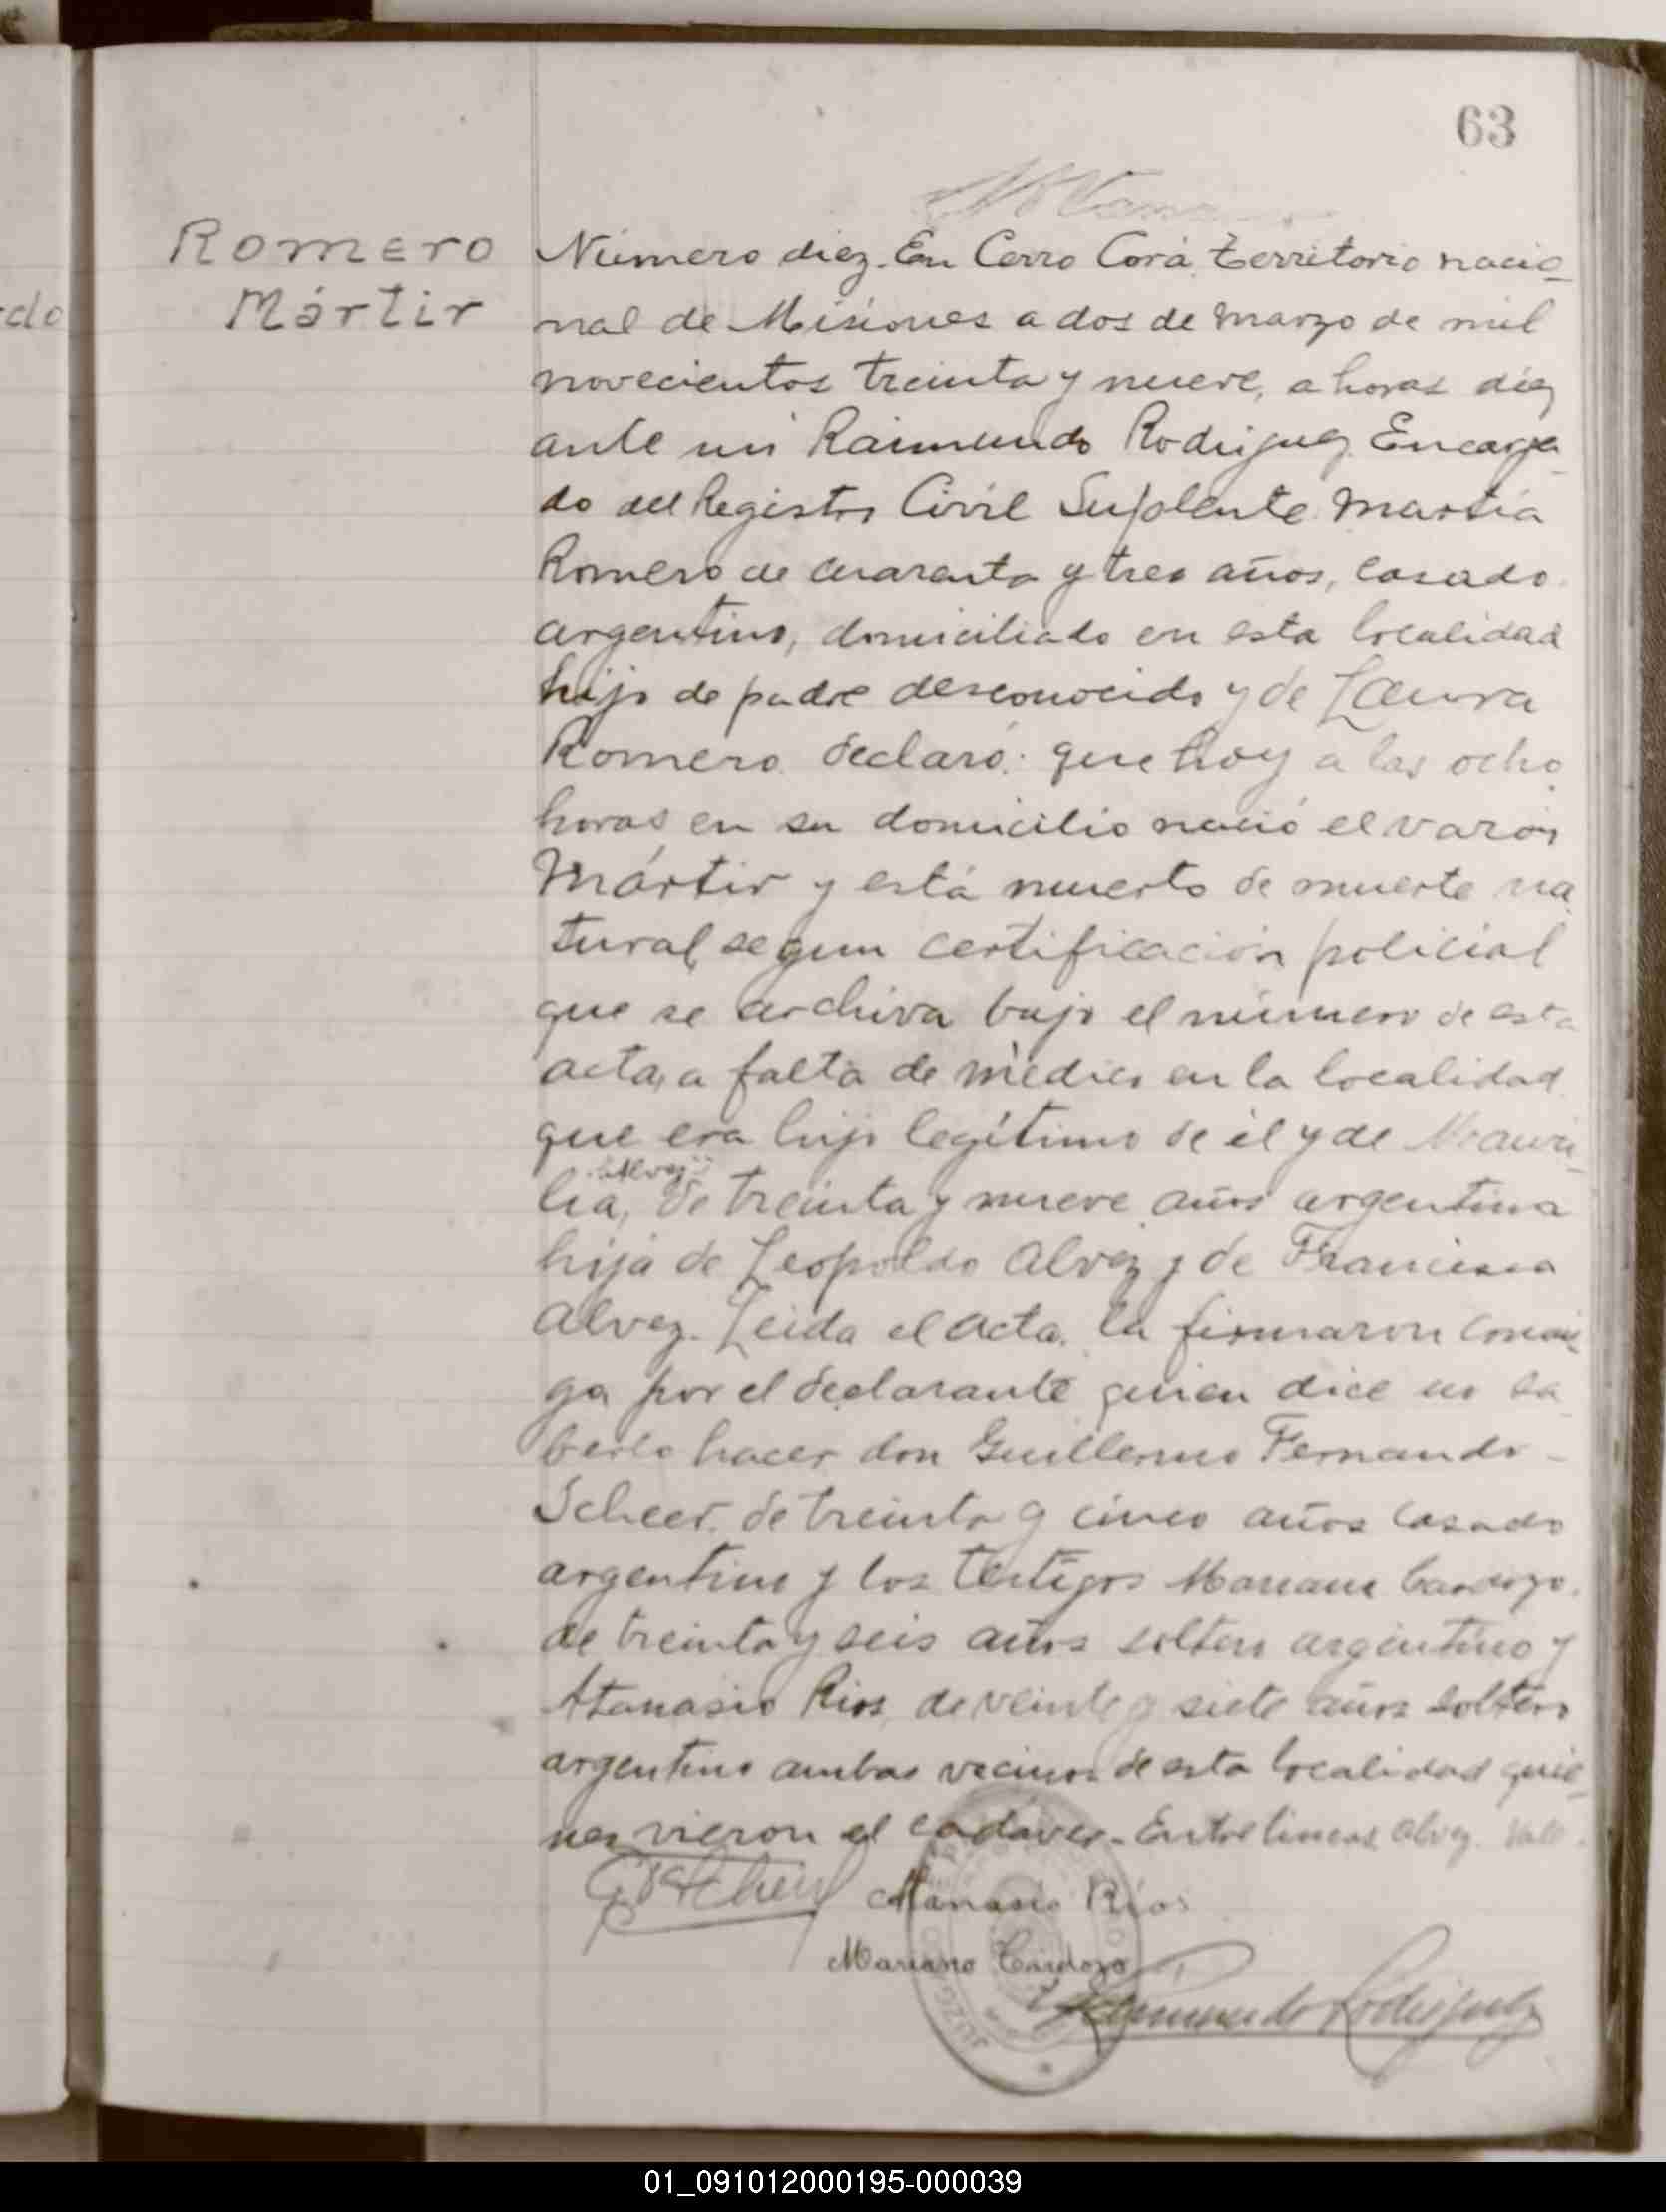 63
Romero
Mártir
do
Número diez. En Cerro Corá, territorio nacio_
nal de Misiones a dos de Marzo de mil
novecientos treinta y nueve, a horas diez
ante mi Raimundo Rodriguez Encarga_
do del Registro Civil Suplente Martin
Romero de cuarenta y tres años, casado
argentino, domiciliado en esta localidad
hijo de padre desconocido y de Laura
Romero declaró: que hoy a las ocho
horas en su domicilio nació el varón
Mártir y está muerto de muerte na
tural, segun certificación policial
que se archiva bajo el número de esta
acta, a falta de médico en la localidad
que era hijo legítimo de él y de Mauri_
"Alvez"
lia, de treinta y nueve años argentina
hija de Leopoldo Alvez y de Francisca
Alvez. Leida el acta. la firmaron conmi_
go por el declarante quien dice no sa
berlo hacer don Guillermo Fernando
Scheer de treinta y cinco años casado
argentino y los testigos Mariano Cardozo
de treinta y seis años soltero argentino y
Atanasio Rios, de veinte y siete años soltero
argentino ambos vecinos de esta localidad quie_
nes vieron el cadaver. Entre lineas Alvez. Vale.
Atanasio Ríos
Mariano Cardozo
Raimundo Rodriguez
JUZG
01_091012000195-000039